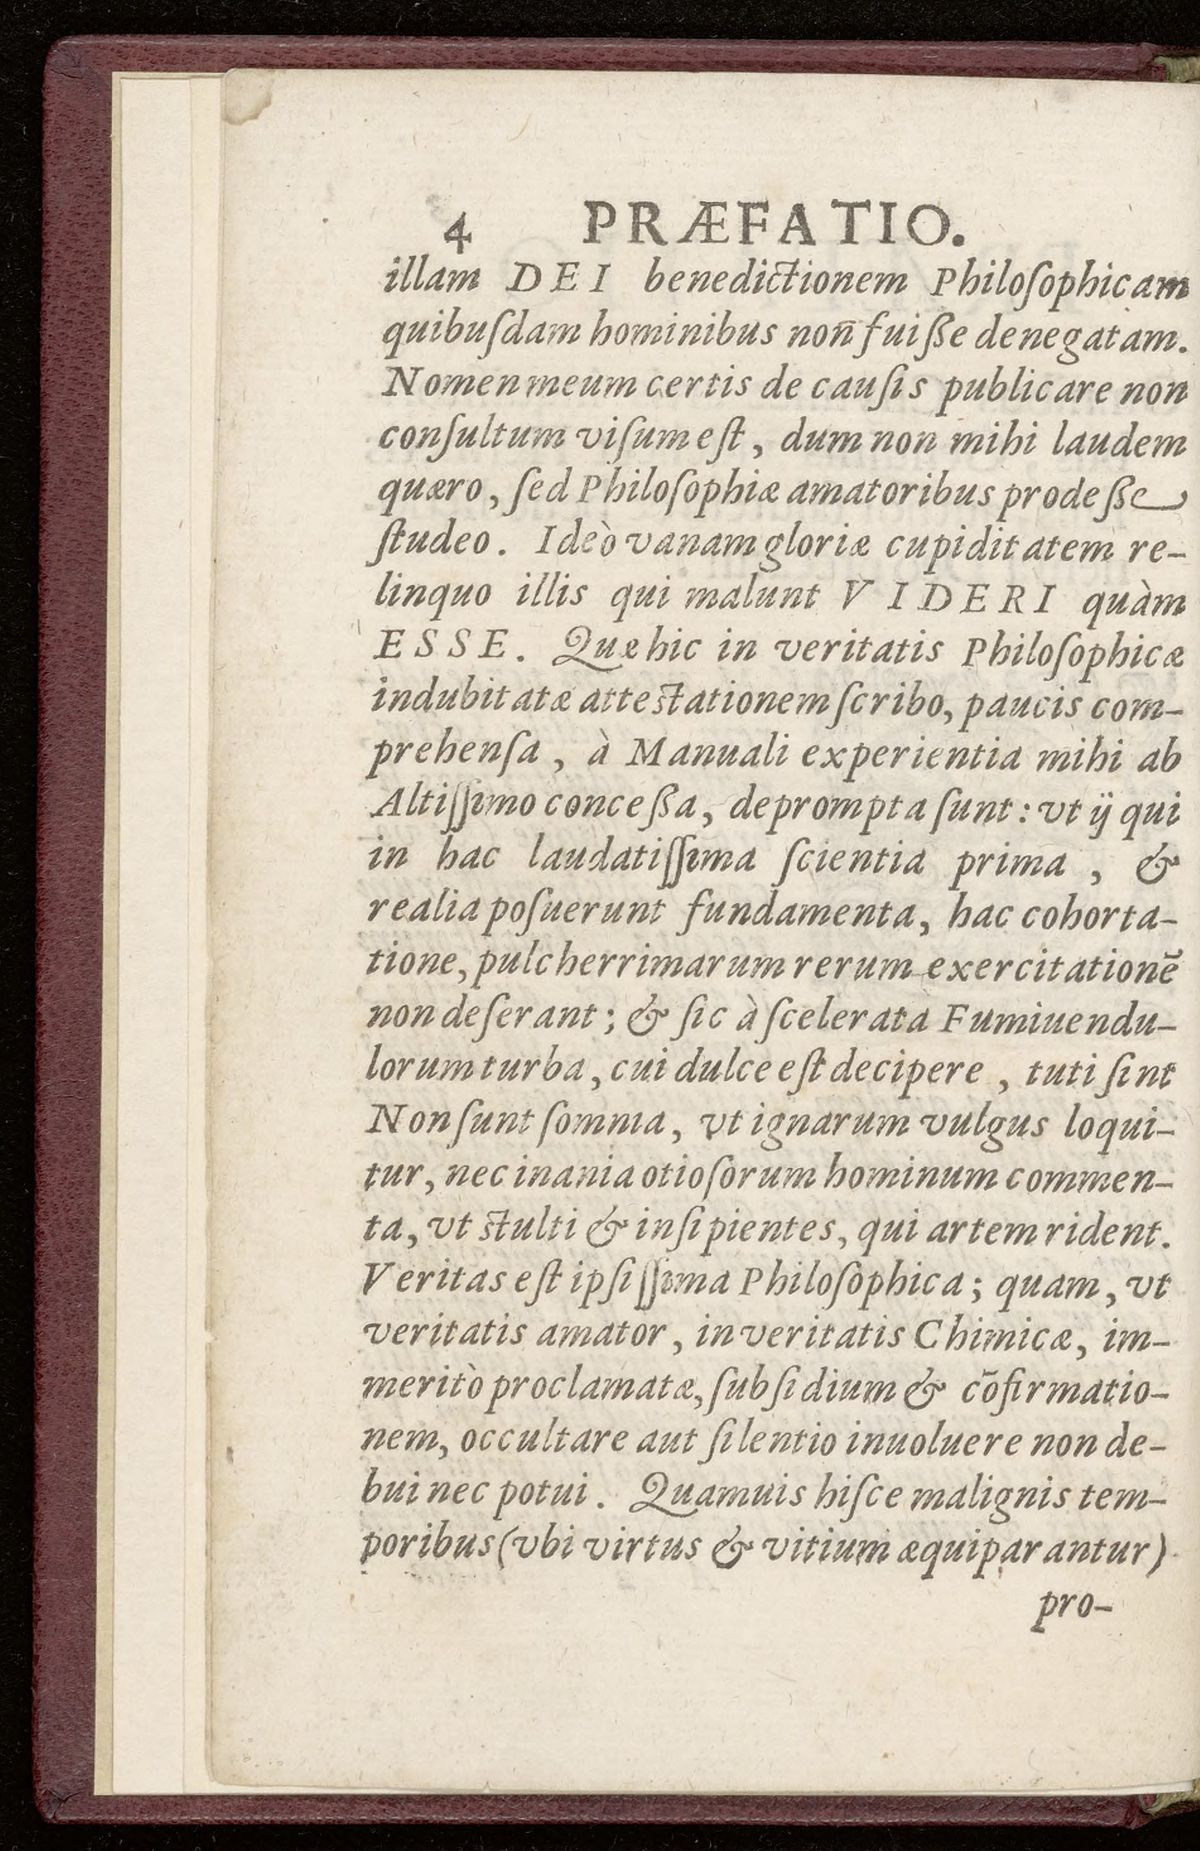 4 PRÆFATIO.
illam DEI benedictionem Philoſophicam
quibuſdam hominibus non̄ fuiße denegatam.
Nomen meum certis de cauſis publicare non
conſultum viſum eſt, dum non mihi laudem
quæro, ſed Philoſophiæ amatoribus prodeße
ſtudeo. Ideò vanam gloriæ cupiditatem re-
linquo illis qui malunt VIDERI quàm
ESSE. Quæ hic in veritatis Philoſophicæ
indubitatæ atteſtationem ſcribo, paucis com-
prehenſa, à Manuali experientia mihi ab
Altiſſimo conceßa, deprompta ſunt: vt ij qui
in hac laudatiſſima ſcientia prima, &
realia poſuerunt fundamenta, hac cohorta-
tione, pulcherrimarum rerum exercitationẽ
non deſerant; & ſic à ſcelerata Fumiuendu-
lorum turba, cui dulce eſt decipere, tuti ſint
Non ſunt ſomnia, vt ignarum vulgus loqui-
tur, nec inania otioſorum hominum commen-
ta, vt ſtulti & inſipientes, qui artem rident.
Veritas eſt ipſiſſima Philoſophica; quam, vt
veritatis amator, in veritatis Chimicæ, im-
meritò proclamatæ, ſubſidium & cõfirmatio-
nem, occultare aut ſilentio inuoluere non de-
bui nec potui. Quamuis hiſce malignis tem-
poribus (vbi virtus & vitium æquiparantur)
pro-